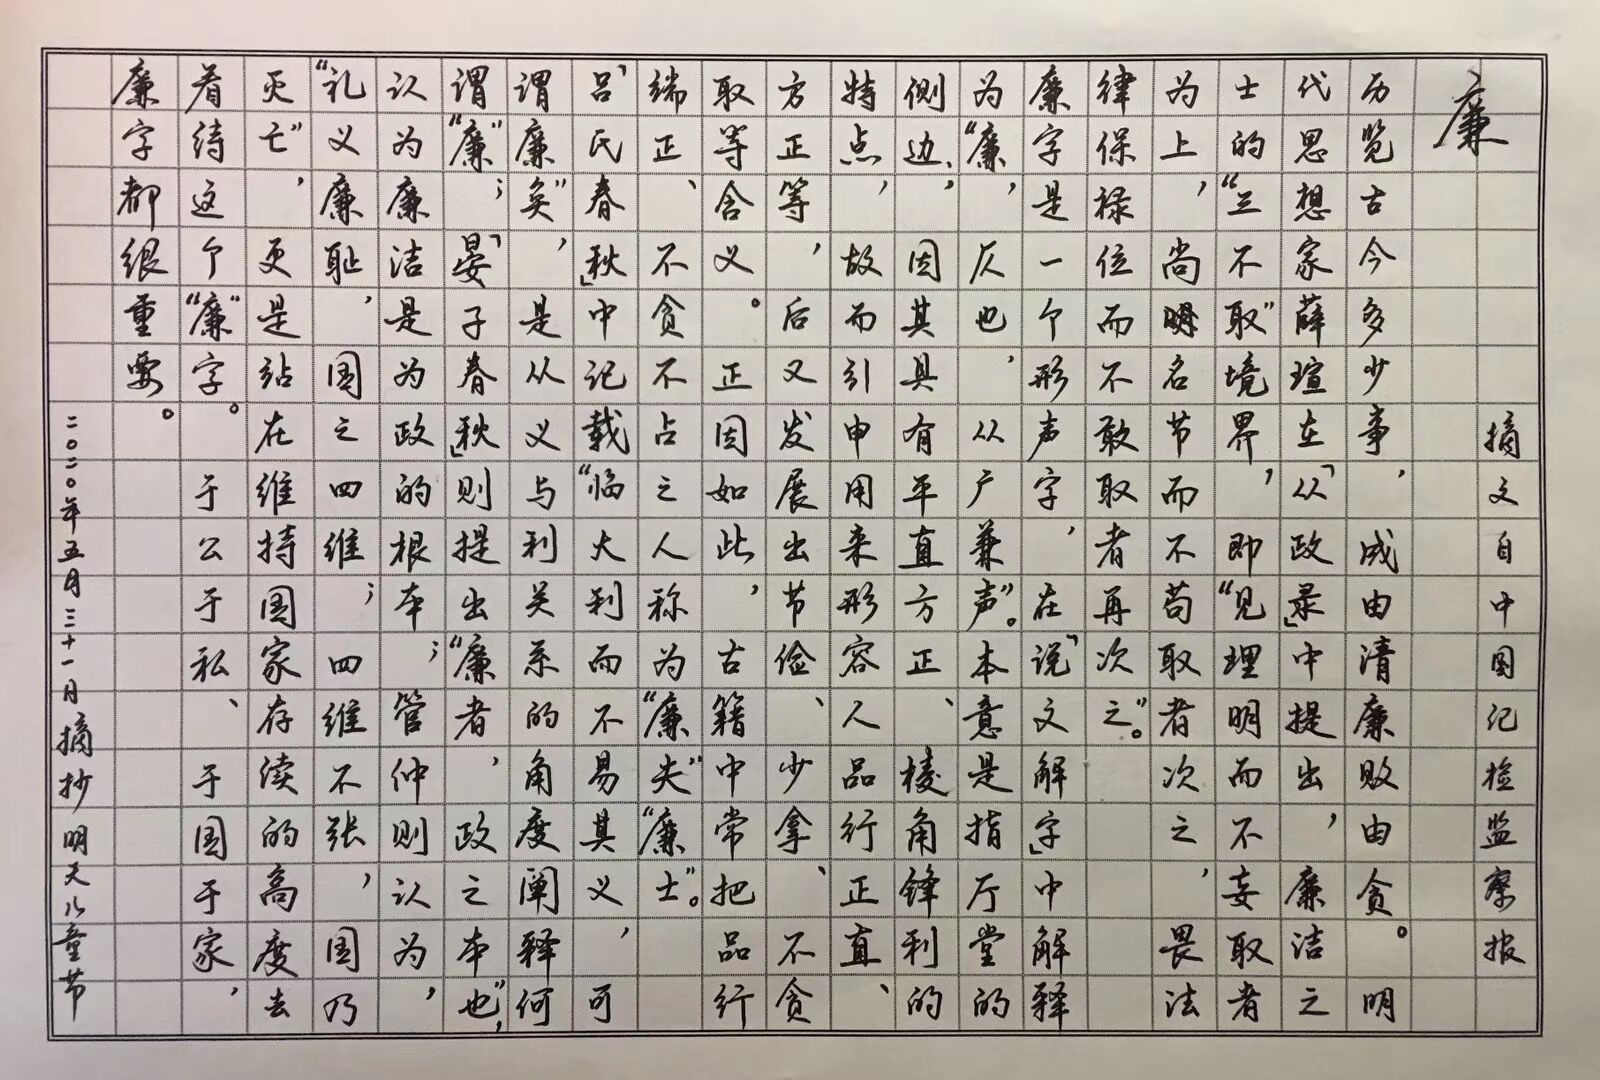 摘文自中国纪检监察报
廉
历览古今多少事，成由清廉败由贪。明
代思想家薛瑄在「从政录」中提出，廉洁之
士的“三不取”境界，即“见理明而不妄取者
为上，尚明名节而不苟取者次之，畏法
律保禄位而不敢取者再次之”。
廉字是一个形声字，在「说文解字」中解释
为“廉，仄也，从广兼声”。本意是指厅堂的
侧边，因其具有平直方正、棱角锋利的
特点，故而引申用来形容人品行正直、
方正等，后又发展出节俭、少拿、不贪
取等含义。正因如此，古籍中常把品行
端正、不贪不占之人称为“廉夫”“廉士”。
「吕氏春秋」中记载“临大利而不易其义，可
谓廉矣”，是从义与利关系的角度阐释何
谓“廉”；「晏子春秋」则提出“廉者，政之本也”，
认为廉洁是为政的根本；管仲则认为，
“礼义廉耻，国之四维；四维不张，国乃
灭亡”，更是站在维持国家存续的高度去
看待这个“廉”字。于公于私、于国于家，
廉字都很重要。
二〇二〇年五月三十一日摘抄 明天儿童节